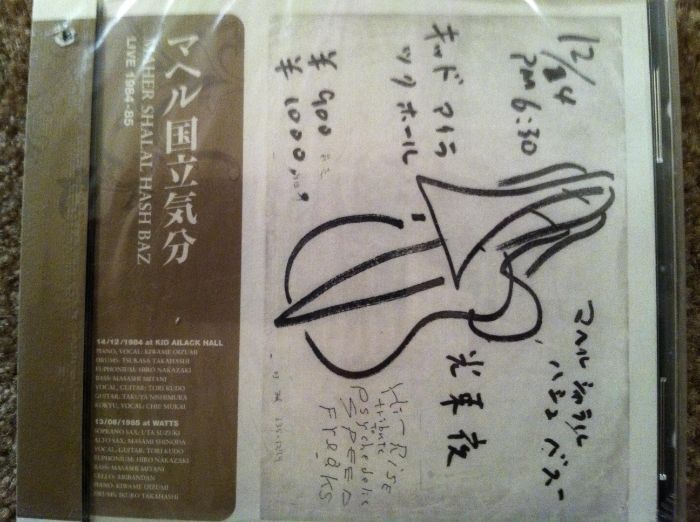 マヘル国立気分
MAHER SHALAL HASH BAZ
LIVE 1984-85
14/12/1984 at KID AILACK HALL
PIANO, VOCAL: KIWAME OIZUMI
DRUMS: TSUKASA TAKAHASHI
EUPHONIUM: HIRO NAKAZAKI
BASS: MASASHI MITANI
VOCAL, GUITAR: TORI KUDO
GUITAR: TAKUYA NISHIMURA
KOKYU, VOCAL: CHIE MUKAI
13/06/1985 at WATTS
SOPRANO SAX: UTA SUZUKI
ALTO SAX: MASAMI SHINODA
VOCAL, GUITAR: TORI KUDO
EUPHONIUM: HIRO NAKAZAKI
BASS: MASASHI MITANI
CELLO: MERANDAN
PIANO: KIWAME OIZUMI
DRUMS: IKURO TAKAHASHI
12/24
PM 6:30
キッド アイラ
ック ホール
¥900
¥1000
マヘル シャラル
ハシュ バズ
光束夜
High Rise
tribute
To
Psychedelic
SPEED
Freaks